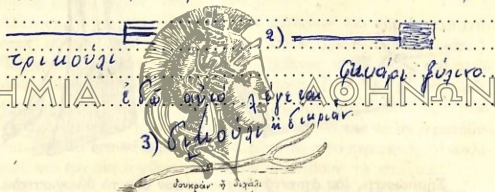 2)
τρικούλι
φκυάρι ξύλινο
ΗΜΙΑ ΑΘΗΝΩΝ
ἐδῶ αὐτὸ λέγεται
3) δικούλι ἢ δικριάν
δουκράν' ἢ διχάλι